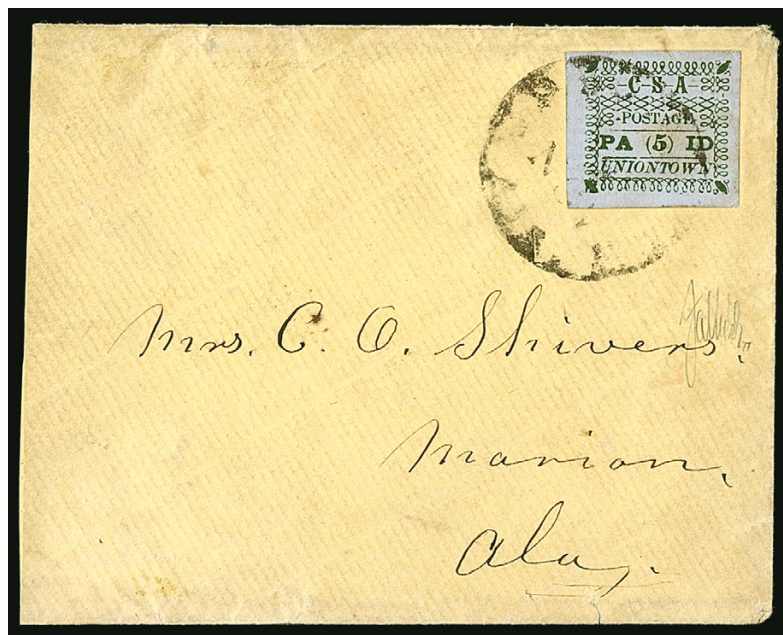 C S A
POSTAGE
PA (5) ID
UNIONTOWN
Mrs. C. O. Shivers.
Marion,
Ala.